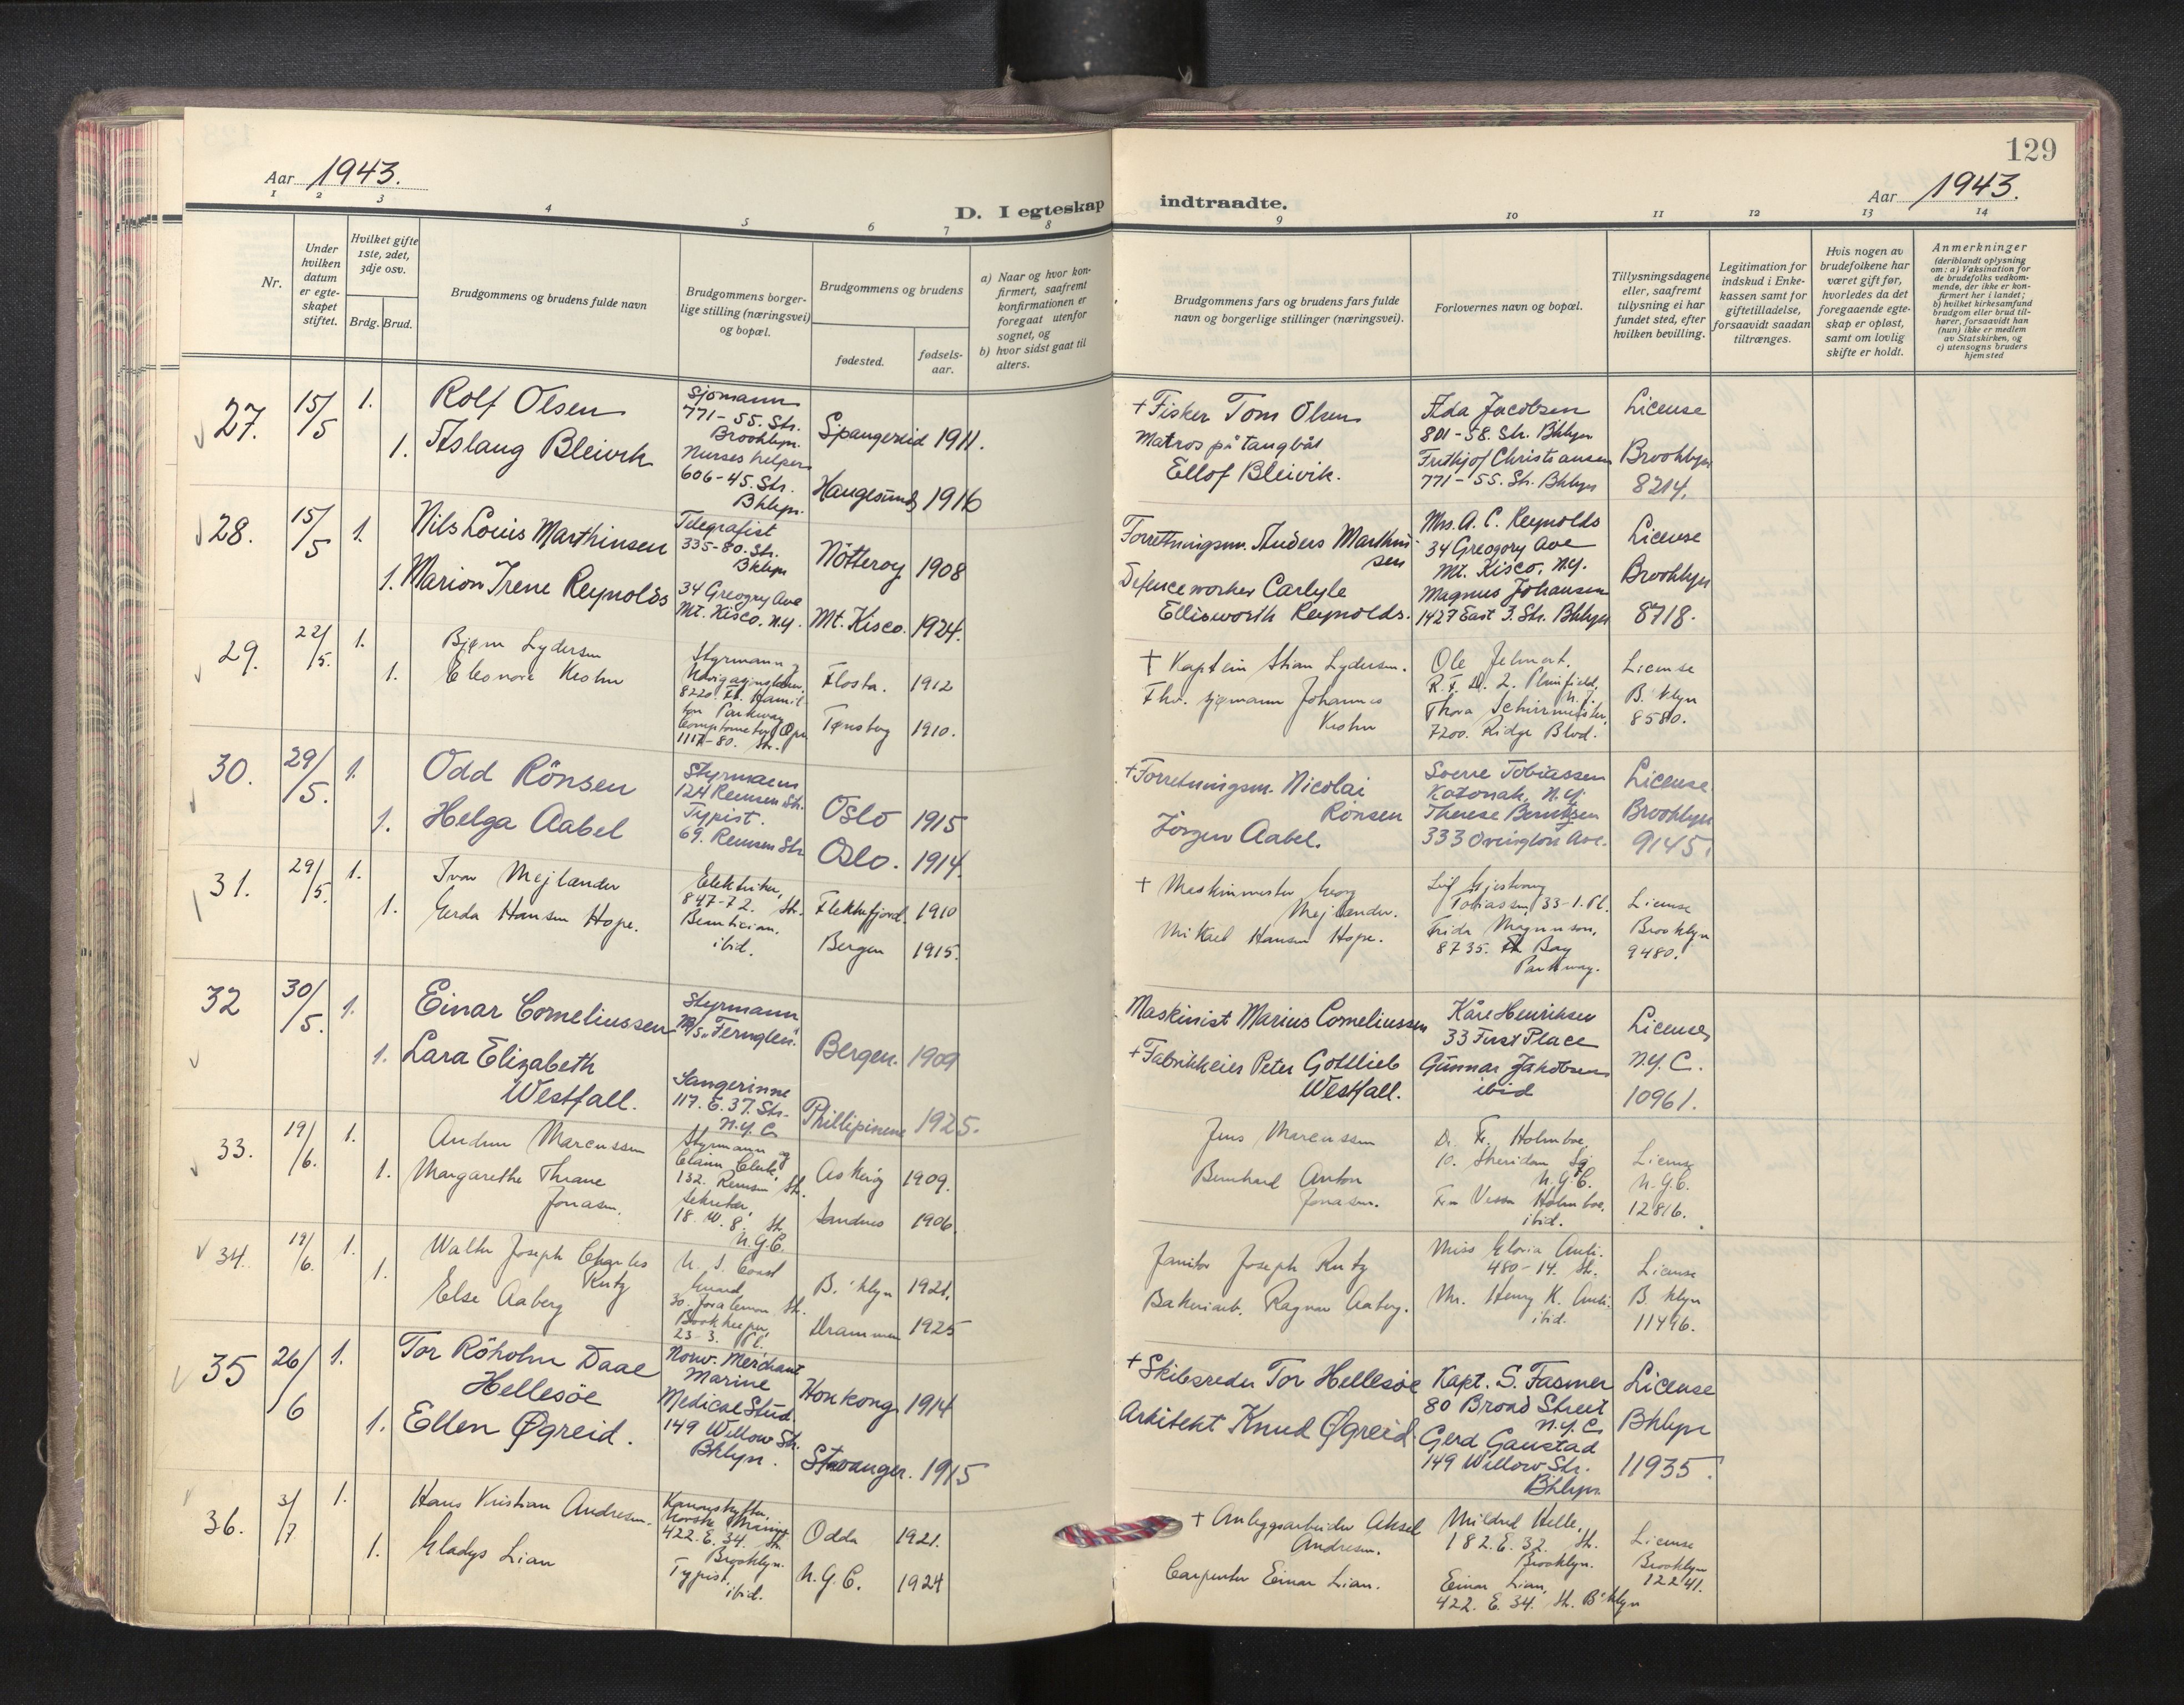 129
Aar 1943.
Aar 1943.
D. I egteskap indtraadte.
1 2 3 4 5 6 7 8 9 10 11 12 13 14
Nr.
Under hvilken datum er egte-skapet stiftet.
Hvilket gifte 1ste, 2det, 3dje osv.
Brdg. Brud.
Brudgommens og brudens fulde navn
Brudgommens borger-
lige stilling (næringsvei)
og bopæl.
Brudgommens og brudens
fødested.
fødsels-
aar.
a) Naar og hvor kon-
firmert, saafremt
konfirmationen er
foregaat utenfor
sognet, og
b) hvor sidst gaat til
alters.
Brudgommens fars og brudens fars fulde
navn og borgerlige stillinger (næringsvei).
Forlovernes navn og bopæl.
Tillysningsdagene
eller, saafremt
tillysning ei har
fundet sted, efter
hvilken bevilling.
Legitimation for
indskud i Enke-
kassen samt for
giftetilladelse,
forsaavidt saadan
tiltrænges.
Hvis nogen av
brudefolkene har
været gift før,
hvorledes da det
foregaaende egte-
skap er opløst,
samt om lovlig
skifte er holdt.
Anmerkninger
(deriblandt oplysning
om: a) Vaksination for
de brudefolks vedkom-
mende, der ikke er kon-
firmert her i landet;
b) hvilket kirkesamfund
brudgom eller brud til-
hører, forsaavidt han
(hun) ikke er medlem
av Statskirken, og
c) utensogns bruders
hjemsted
27. 15/5 1. Rolf Olsen
1. Aslaug Bleivik
Sjömann
771-55. Str.
Brooklyn.
Nurses helper
606-45. Str.
Bklyn.
Spangereid 1911.
Haugesund 1916
+ Fisker Tom Olsen
Matros på taugbåt
Ellof Bleivik.
Ada Jacobsen
801-58. Str. Bklyn
Frithjof Christiansen
771-55. Str. Bklyn
License
Brooklyn
8214.
28. 15/5 1. Nils Louis Marthinsen
1. Marion Irene Reynolds
Telegrafist
335-80. Str.
Bklyn
34 Greogry Ave
Mt. Kisco. N.Y.
Nötteroy 1908
Mt. Kisco. 1924.
Forretningsm. Anders Marthin-
sen
Defence worker Carlyle
Ellisworth Reynolds.
Mrs. A. C. Reynolds
34 Greogory Ave
Mt. Kisco, N.Y.
Magnus Johansen
1427 East 3. Str. Bklyn
License
Brooklyn
8718.
29. 22/5. 1. Bjørn Lydersen
1. Eleonore Krohn
Styrmann
8220. Ft. Hamil
ton Parkway
Comptometer Op.
1117-80. Str.
Flosta. 1912
Tønsberg 1910.
+ Kaptein Stian Lydersen.
Fhv. sjømann Johannes
Krohn
Ole
R.F.D. 2. Plainfield,
N.J.
Thora Schirrmeister,
7200. Ridge Blvd.
License
B.'klyn
8580.
30. 29/5. 1. Odd Rönsen
1. Helga Aabel
Styrmann
124 Remsen Str.
Typist.
69. Remsen Str
Oslo 1915
Oslo. 1914.
+ Forretningsm. Nicolai
Rönsen
Jörgen Aabel.
Sverre Tobiassen
Katonah, N.Y.
Therese Berntsen
333 Ovington Ave.
License
Brooklyn
9145.
31. 29/5. 1. Ivar Mejlænder
1. Gerda Hansen Hope.
Elektriker,
847-72. Str.
Beautician.
ibid.
Flekkefjord. 1910
Bergen 1915.
+ Maskinmester Georg
Mejlænder.
Mikael Hansen Hope.
Leif
Tobiassen, 33-1. Pl.
Frida Magnusson,
8735. Bay
Parkway.
License
Brooklyn
9480.
32 30/5. 1. Einar Corneliussen
1. Lara Elizabeth
Westfall.
Styrmann
M/S. "Fernglen".
Sangerinne
117. E. 37. Str.
N.Y.C.
Bergen. 1909
Phillipinene 1925.
Maskinist Marius Corneliussen
+ Fabrikkeier Peter Gottlieb
Westfall.
Kåre Henriksen
33 First Place
Gunnar Jakobsen
ibid
License
N.Y.C.
10961.
33. 19/6. 1. Andrew Marcussen
1. Margarethe Thrane
Jonasen.
Styrmann og
Claim Clerk,
132. Remsen Str.
Sekretær,
18. W. 8. Str.
N.Y.C.
Askerøy 1909.
Sandnes 1906.
Jens Marcussen
Bernhard Anton
Jonasen.
Dr. Fr. Holmboe,
10. Sheridan Sq
N.Y.C.
Holmboe,
ibid.
License
N.Y.C.
12816.
34. 19/6. 1. Walter Joseph Charles
Rutz
1. Else Aaberg
U. S. Coast
Guard
30. Joralemon Str.
Bookkeeper,
23-3. Pl.
B.'klyn 1921.
Drammen 1925
Janitor Joseph Rutz
Bakeriarb. Ragnar Aaberg.
Miss Gloria
480-14. Str.
Mr. Henry K.
ibid.
License
B.'klyn
11496.
35 26/6 1. Tor Röholm Daae
Hellesöe
1. Ellen Øgreid.
Norw. Merchant
Marine
Medical Stud.
149 Willow Str.
Bklyn.
Honkong 1914
Stavanger. 1915
+ Skibsreder Tor Hellesöe
Arkitekt Knud Øgreid.
Kapt. S. Fasmer
80 Broad Street
N.Y.C.
Gerd Gaustad
149 Willow Str.
Bklyn
License
Bklyn
11935.
36. 3/7 1. Hans Kristian Andresen.
1. Gladys Lian
Kanonskytter,
Norske Marine
422. E. 34. Str.
Brooklyn.
Typist,
ibid.
Odda 1921.
N.Y.C. 1924
+ Anleggsarbeider Aksel
Andresen.
Carpenter Einar Lian.
Mildred Helle,
182. E. 32. Str.
Brooklyn.
Einar Lian,
422. E. 34. Str. B'klyn
License
Brooklyn
12241.